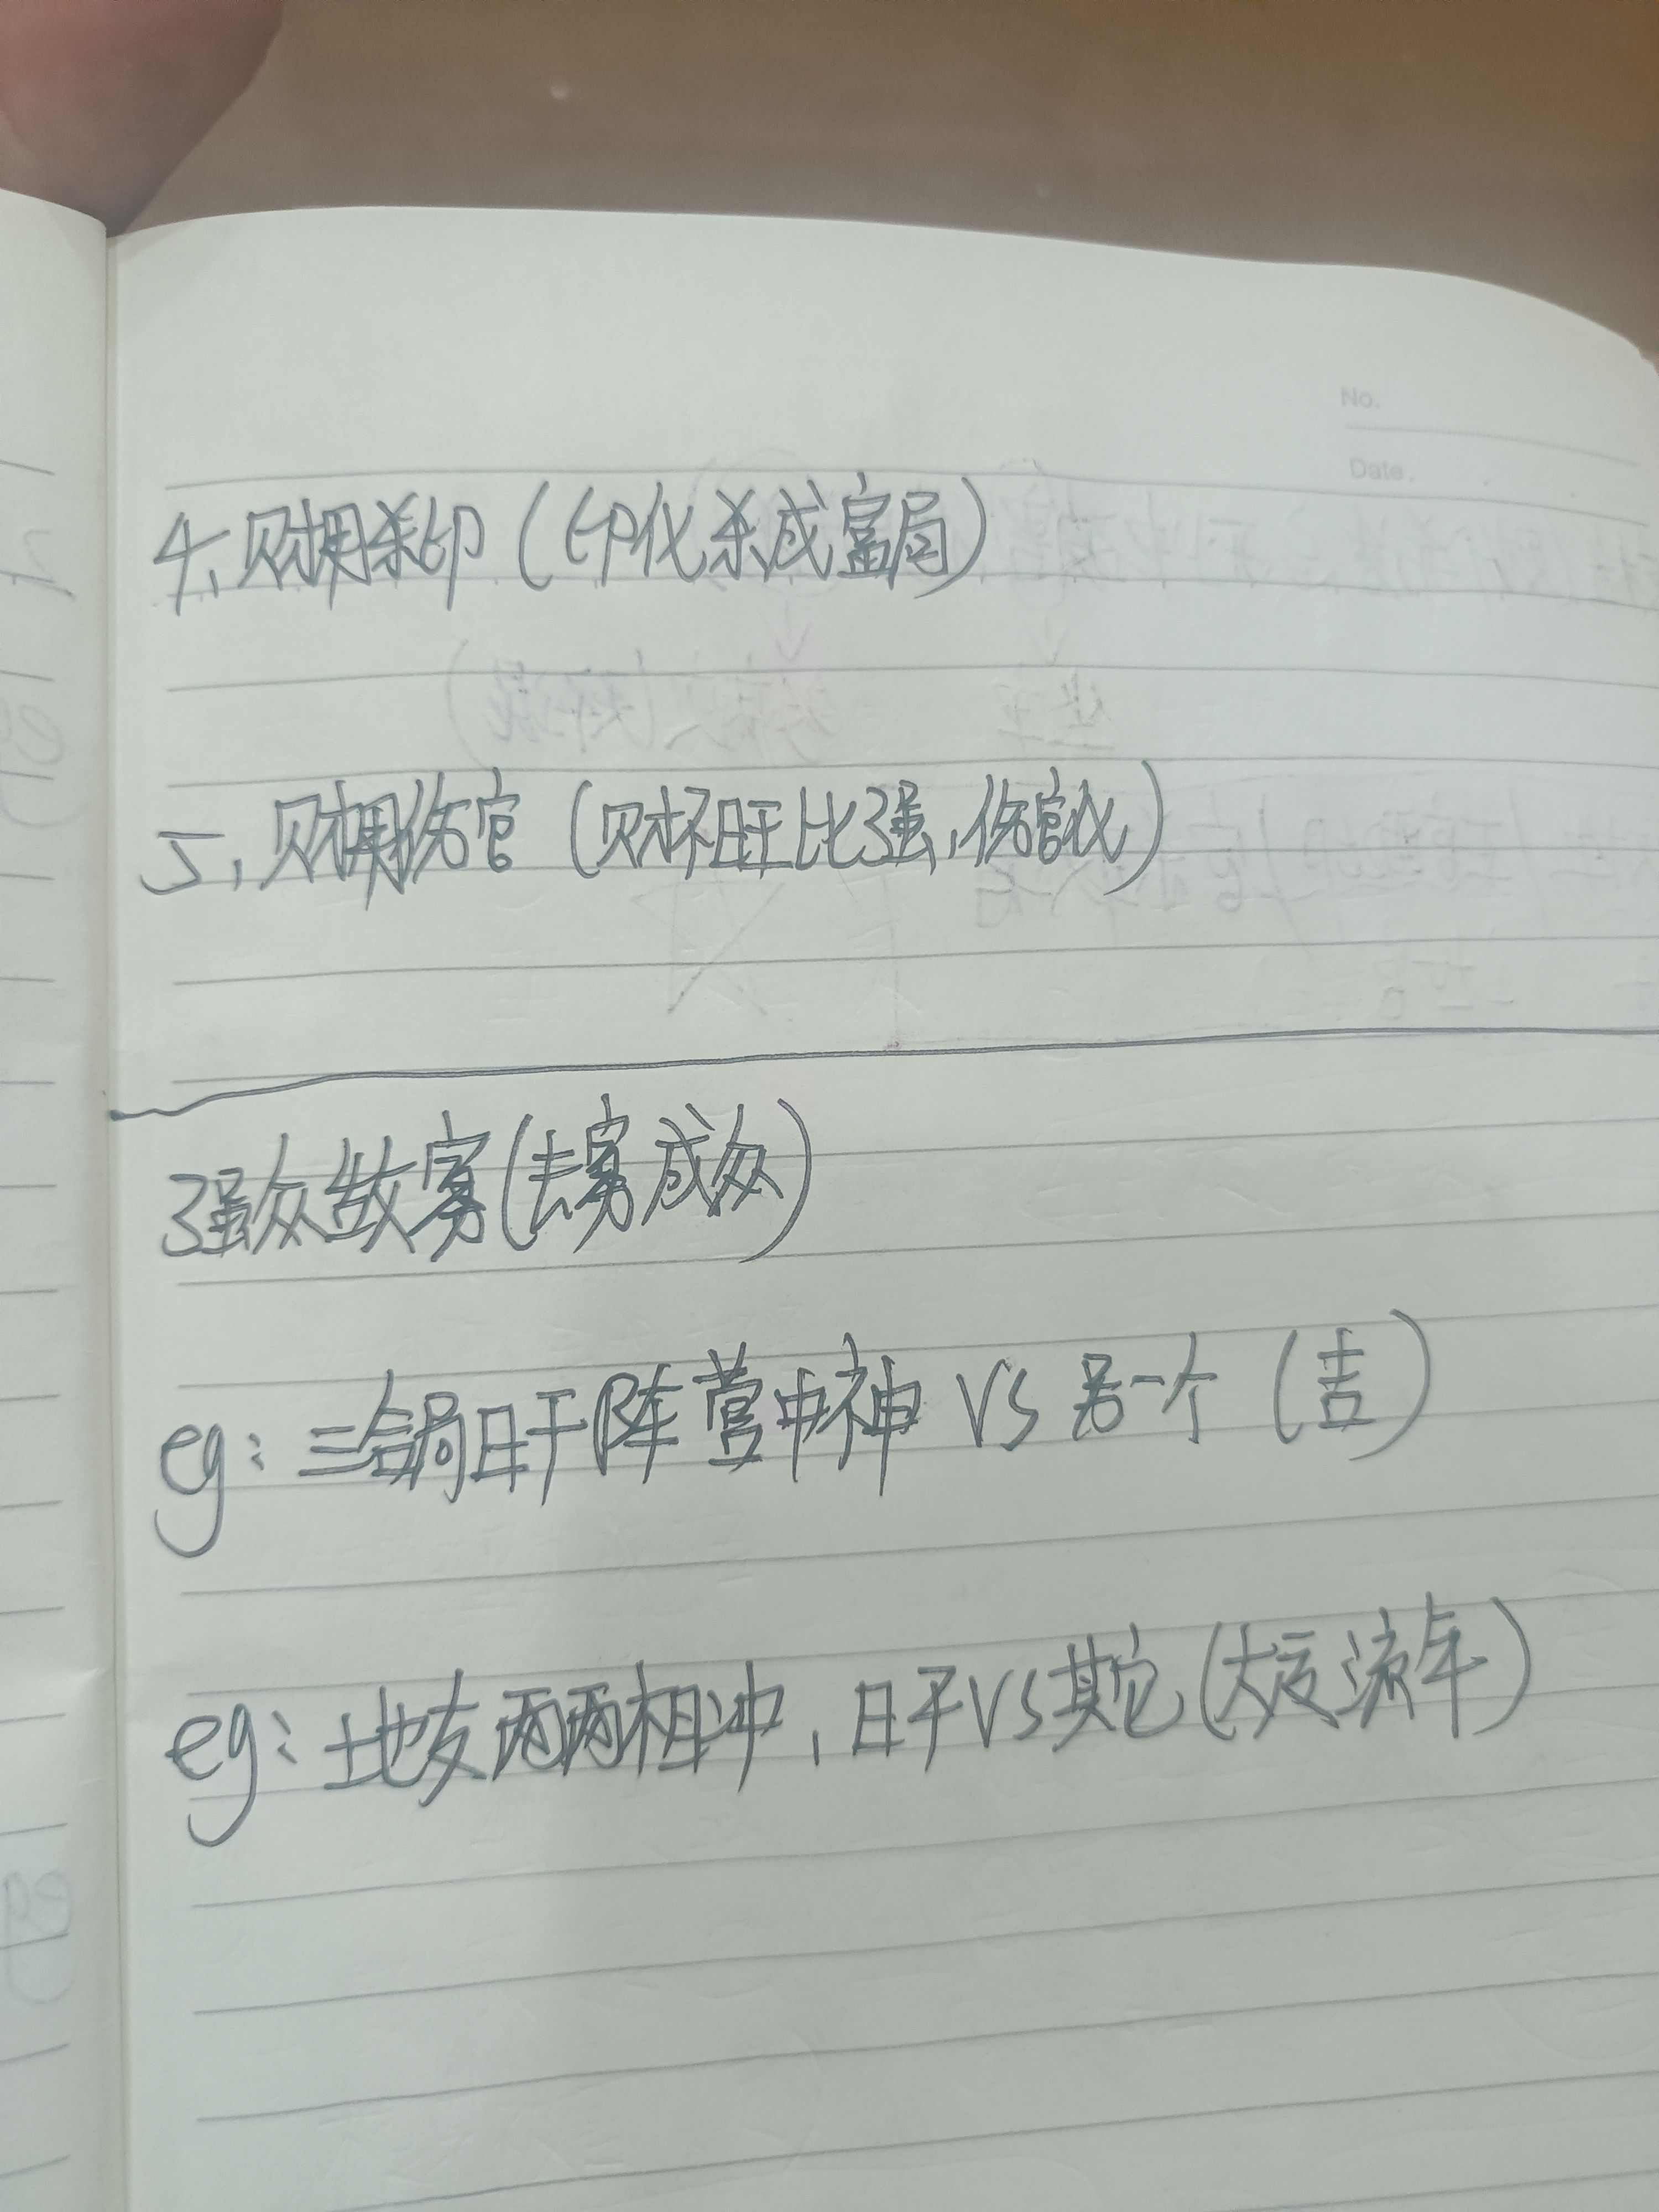 No.
Date.
4、财用杀印（印化杀成富局）
5、财用伤官（财不旺比强，伤官化）
强众敌寡（去寡成众）
eg：三合局日干阵营中神 VS 另一个（吉）
eg：地支两两相冲，日干VS其它（大运流年）